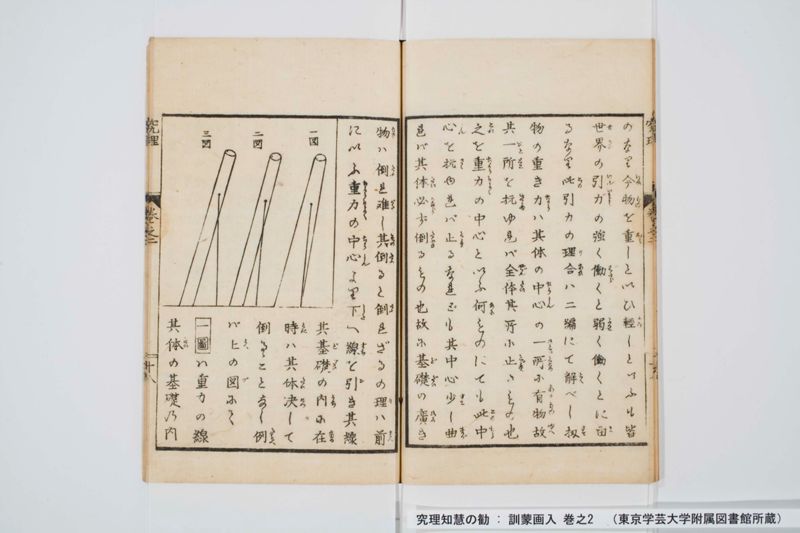 のなり今物を重しといひ軽しといふも皆
世界の引力の強く働くと弱く働くとに由
るなり此引力の理合ハ二編にて解べし扨
物の重き力ハ其体の中心の一所に有物故
其一所を抗ゆれバ全体其所に止まるもの也
之を重力の中心といふ何ものにても此中
心を抗ゆれバ止るなれども其中心少し曲
れバ其体必ず倒るもの也故に基礎の広き
物ハ倒れ難し其倒ると倒れざるの理ハ前
にいふ重力の中心より下へ線を引き其線
其基礎の内に在
時ハ其体決して
倒ることなし例
バ上の図に
一圖ハ重力の線
其体の基礎の内
一図
二図
三図
究理
巻之二
十八
究理知慧の勧 : 訓蒙画入 巻之2 （東京学芸大学附属図書館所蔵）